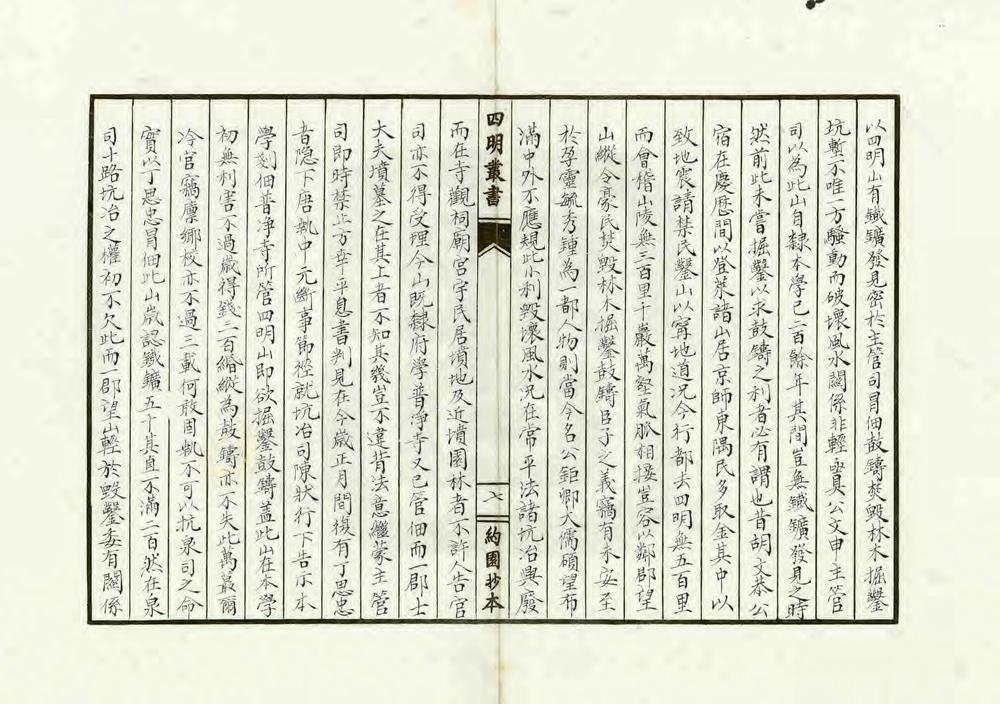 以四明山有鐵鑛發見密於主管司冒佃鼓鑄焚毀林木掘鑿
坑塹不唯一方騷動而破壞風水關係非輕亟具公文申主管
司以為此山自隸本學已二百餘年其間豈無鐵鑛發見之時
然前此未嘗掘鑿以求鼓鑄之利者必有謂也昔胡文恭公
宿在慶歷間以登萊諸山居京師東隅民多取金其中以
致地震請禁民鑿山以寧地道況今行都去四明無五百里
而會稽山陵無三百里千巖萬壑氣脈相接豈容以鄰郡望
山縱令豪民焚毀林木掘鑿鼓鑄臣子之義竊有未安至
於孕靈毓秀鍾為一都人物則當今名公鉅卿大儒碩望布
滿中外不應規此小利毀壞風水況在常平法諸坑冶興廢
四明叢書
八
約園抄本
而在寺觀祠廟宮宇民居墳地及近墳園林者不許人告官
司亦不得受理今山既隸府學普淨寺又已管佃而一郡士
大夫墳墓之在其上者不知其幾豈不違背法意繼蒙主管
司即時禁止方幸平息書判見在今歲正月間復有丁思忠
者隱下唐執中元斷事節徑就坑冶司陳狀行下告示本
學剗佃普淨寺所管四明山即欲掘鑿鼓鑄蓋此山在本學
初無利害不過歲得錢三百緡縱為鼓鑄亦不失此萬最爾
冷官竊廩鄉校亦不過三載何敢固執不可以抗泉司之命
實以丁思忠冒佃此山歲認鐵鑛五十其直不滿二百然在泉
司十路坑冶之權初不欠此而一郡望山輕於毀鑿委有關係